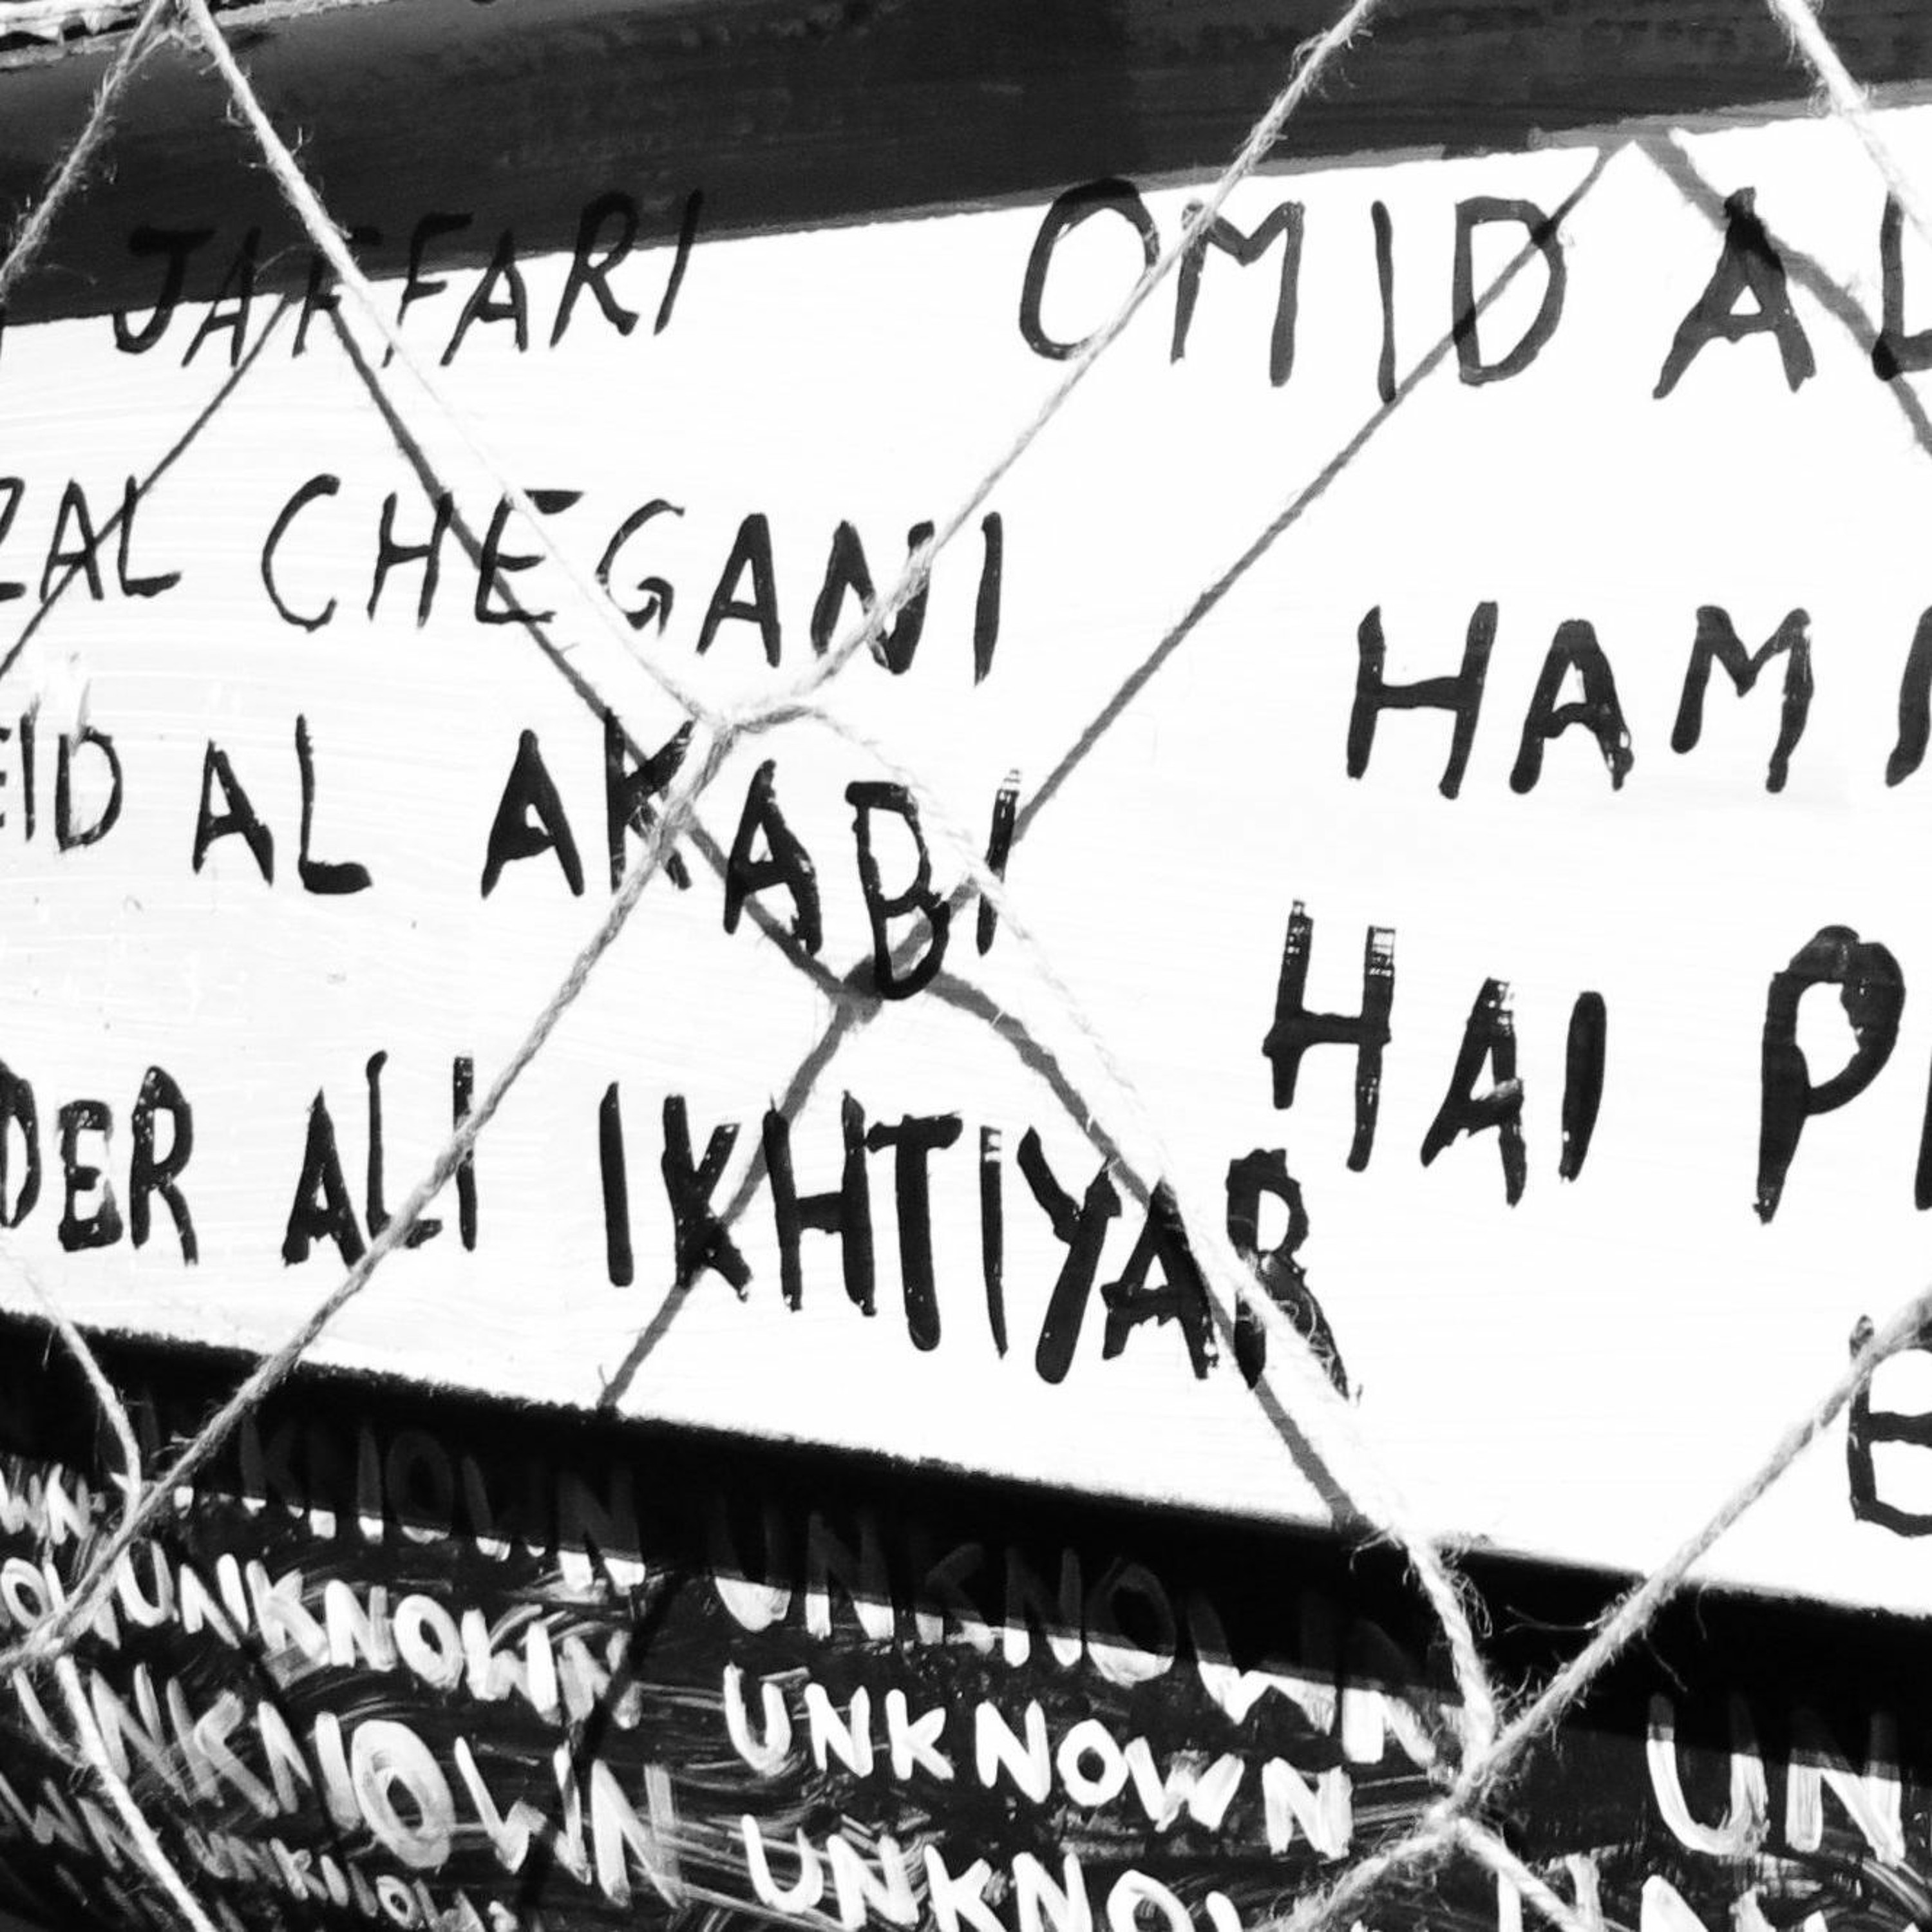 JAFFARI OMID AL
ZAL CHEGANI
HAMI
EID AL AKABI
HAI P
DER ALI IKHTIYAR
UNKNOWN UNKNOWN
UNKNOWN
UNKNOWN UN
UNKNOWN
UNKNO
UNKNOWN